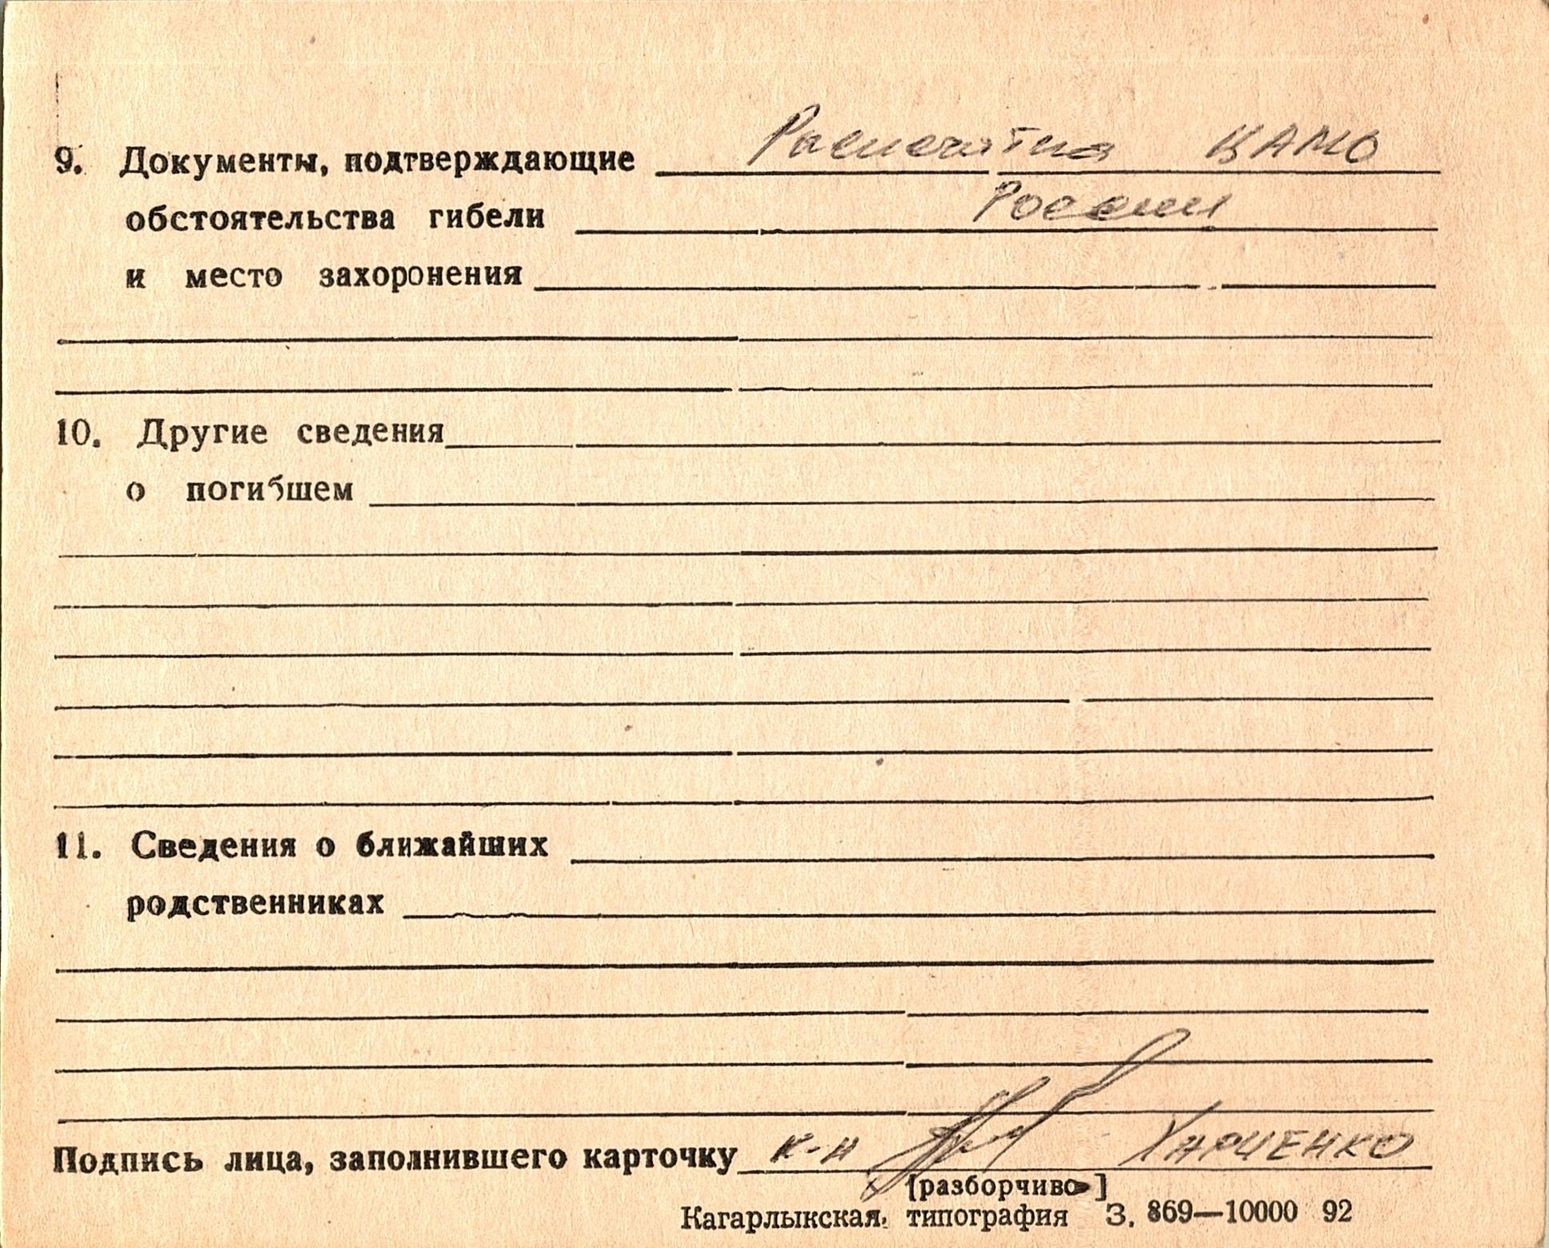 9. Документы, подтверждающие Распечатка ЦАМО
обстоятельства гибели России
и место захоронения
10. Другие сведения
о погибшем
11. Сведения о ближайших
родственниках
Подпись лица, заполнившего карточку к-н Харченко
[разборчиво]
Кагарлыкская, типография З. 869—10000 92